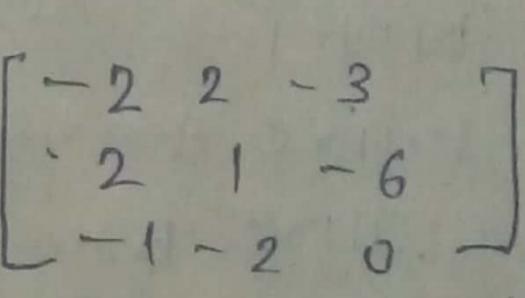 -2 2 -3
2 1 -6
-1 -2 0